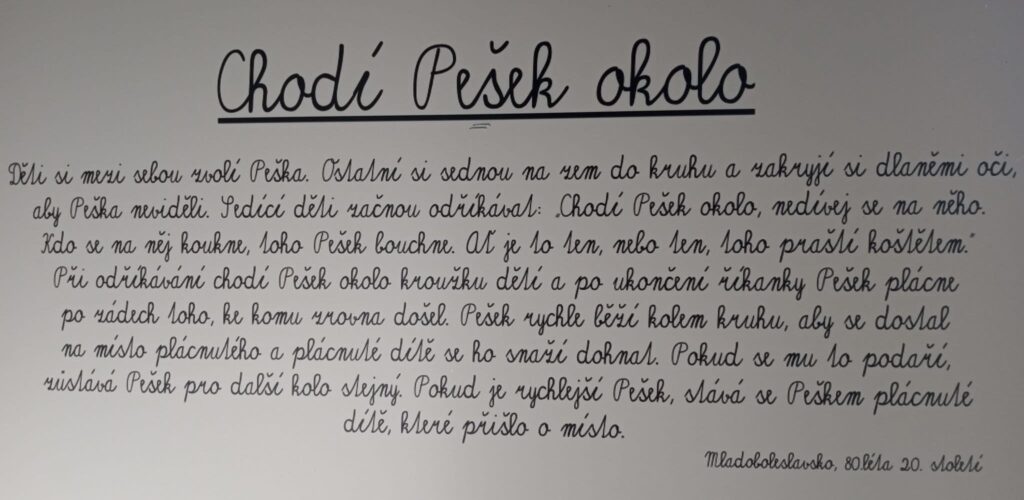 Chodí Pešek okolo
Děti si mezi sebou zvolí Peška. Ostatní si sednou na zem do kruhu a zakryjí si dlaněmi oči,
aby Peška neviděli. Sedící děti začnou odříkávat: „Chodí Pešek okolo, nedívej se na něho.
Kdo se na něj koukne, toho Pešek bouchne. Ať je to ten, nebo ten, toho praští koštětem."
Při odříkávání chodí Pešek okolo kroužku dětí a po ukončení říkanky Pešek plácne
po zádech toho, ke komu zrovna došel. Pešek rychle běží kolem kruhu, aby se dostal
na místo plácnutého a plácnuté dítě se ho snaží dohnat. Pokud se mu to podaří,
zůstává Pešek pro další kolo stejný. Pokud je rychlejší Pešek, stává se Peškem plácnuté
dítě, které přišlo o místo.
Mladoboleslavsko, 80.léta 20. století